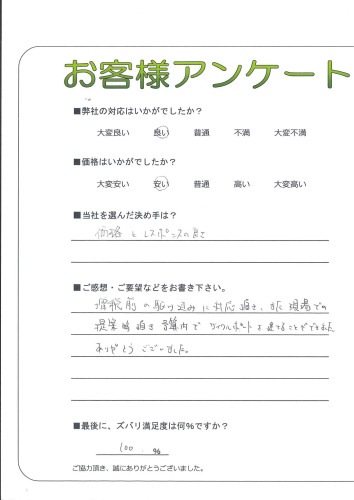 お客様アンケート
■弊社の対応はいかがでしたか？
大変良い 良い 普通 不満 大変不満
■価格はいかがでしたか？
大変安い 安い 普通 高い 大変高い
■当社を選んだ決め手は？
価格とレスポンスの良さ
■ご感想・ご要望などをお書き下さい。
増税前の駆け込みに対応頂き、また現場での
提案等頂き予算内でサイクルポートを建てることができました
ありがとうございました。
■最後に、ズバリ満足度は何%ですか？
100 %
ご協力頂き、誠にありがとうございました。